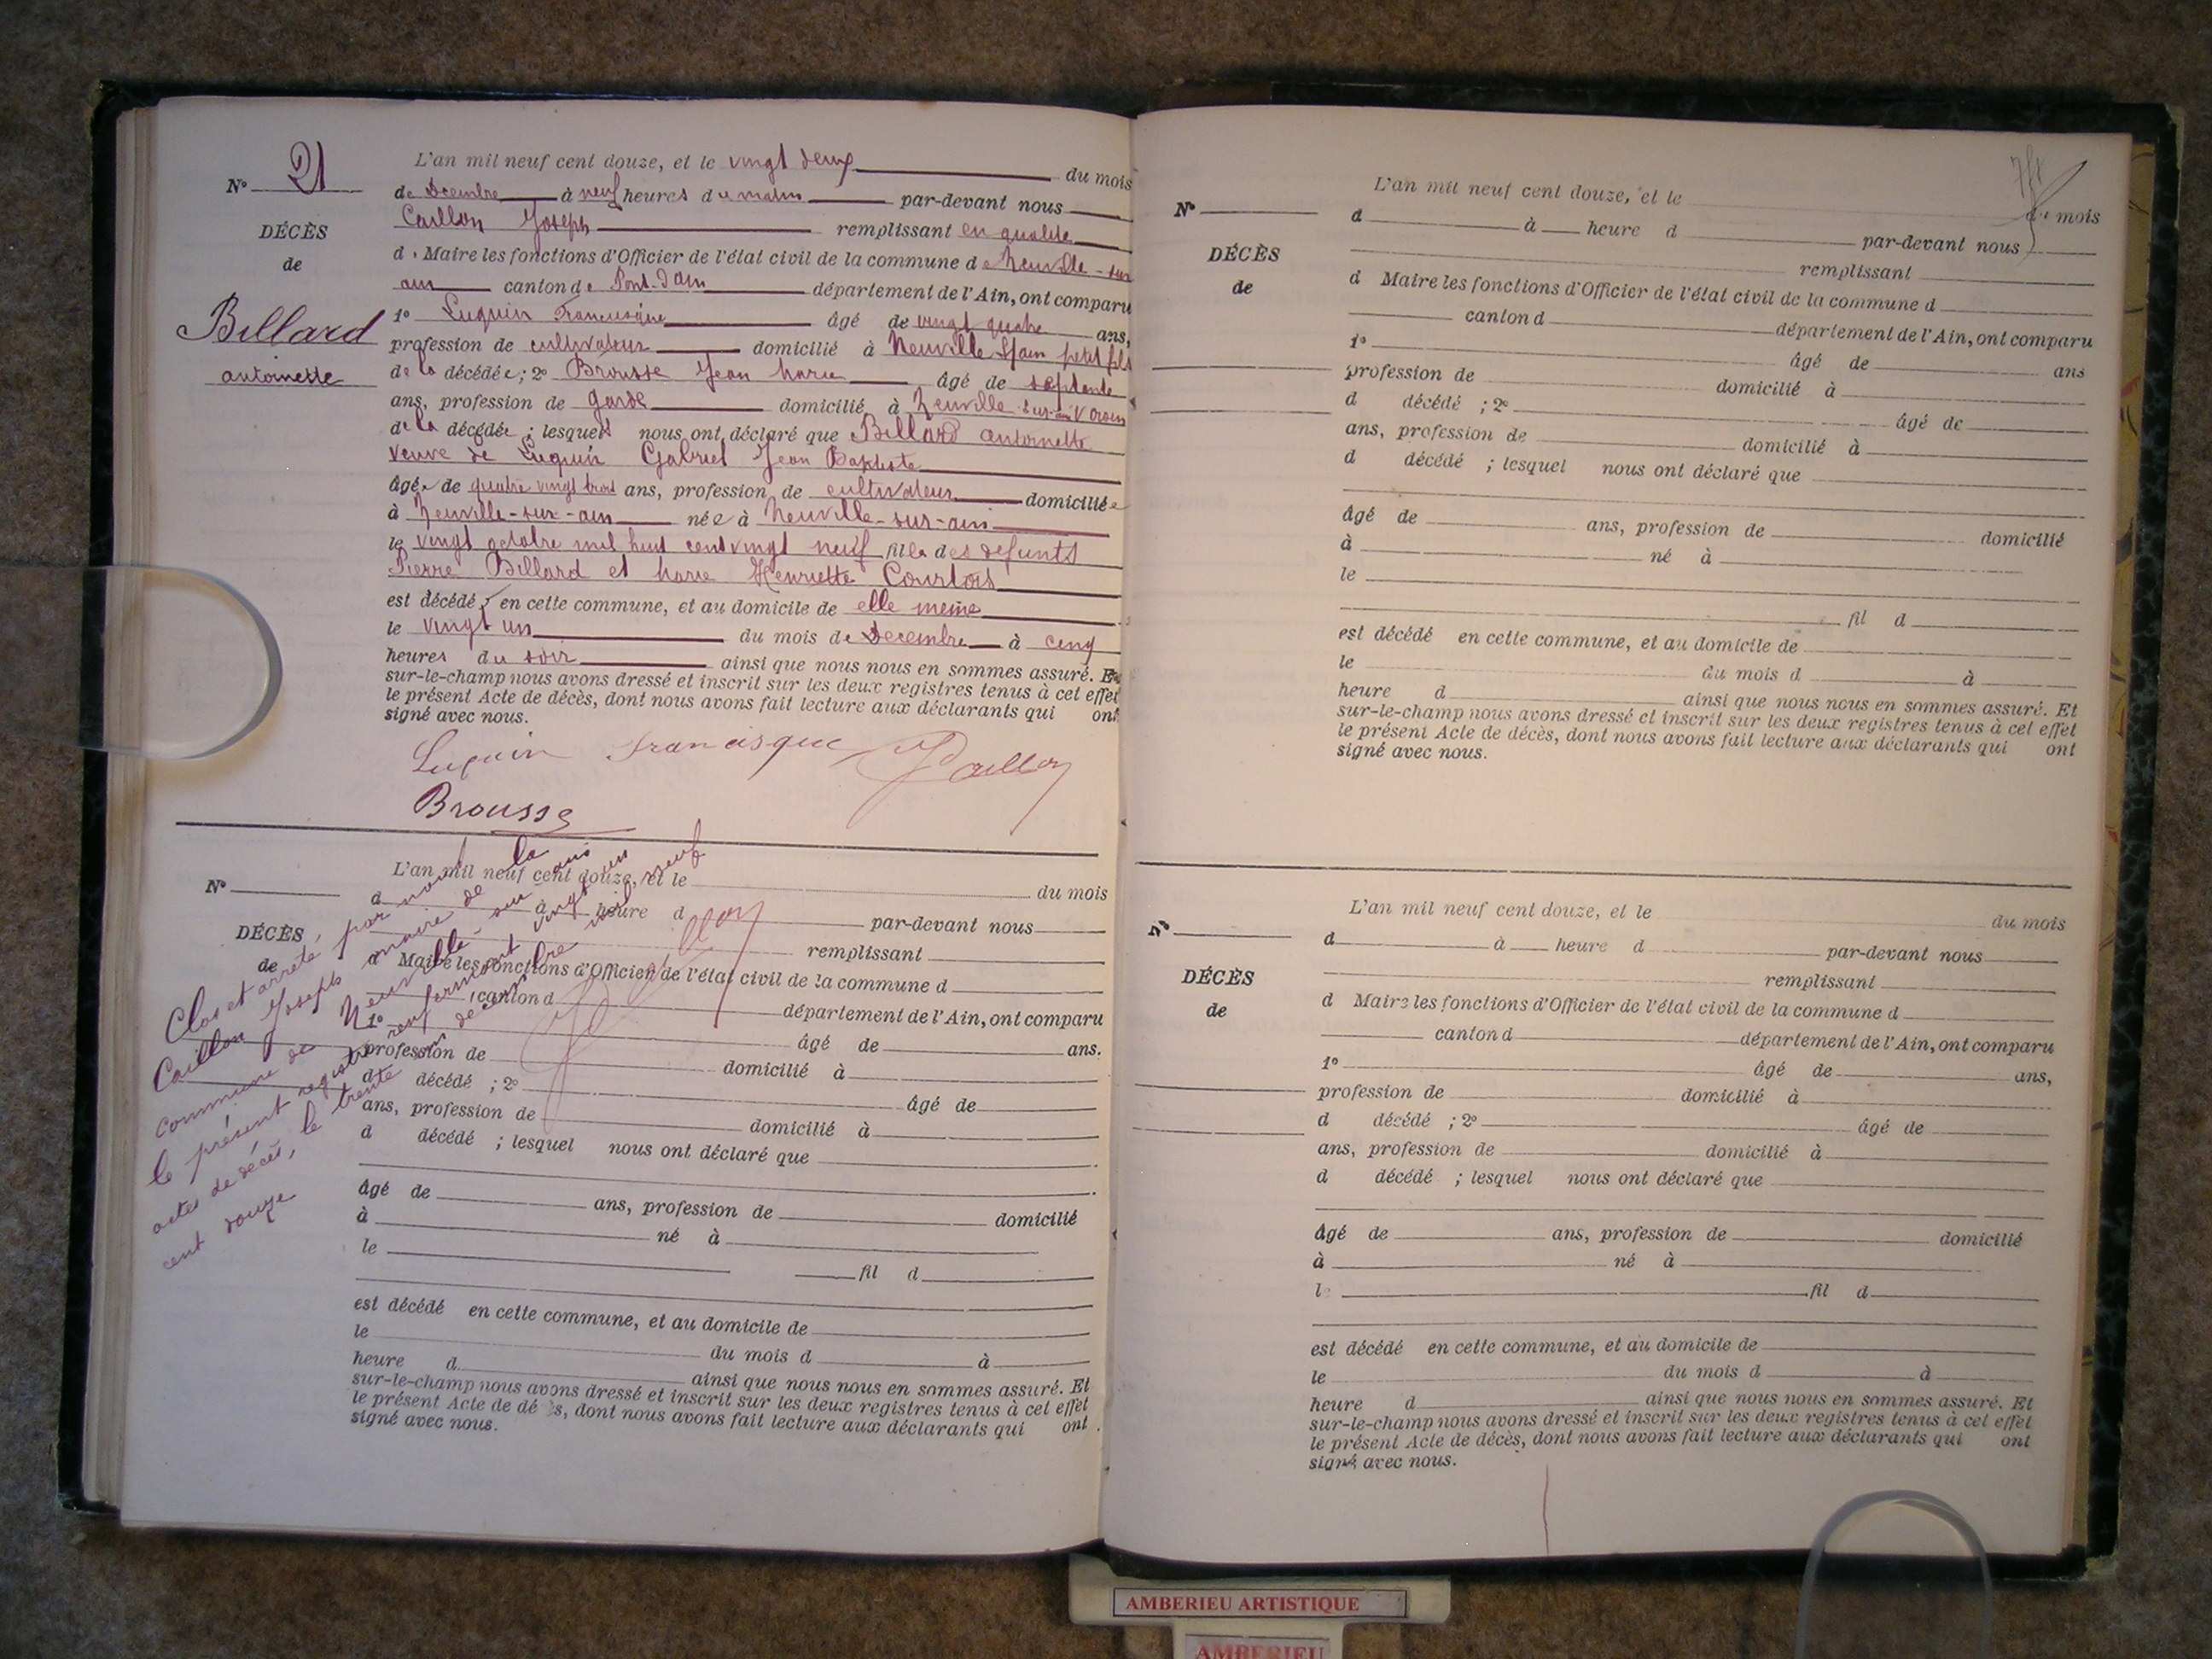 N° 21
DÉCÈS
de
Billard
antoinette
L'an mil neuf cent douze, et le vingt deux du mois
de Decembre à neuf heures du matin par-devant nous
Caillon Joseph remplissant en qualité
d. Maire les fonctions d'Officier de l'état civil de la commune de Neuville-sur
ain canton de Pont-d'Ain département de l'Ain, ont comparu
1° Luquin Francisque âgé de vingt quatre ans,
profession de cultivateur domicilié à Neuville s/ain petit fils
de la décédée; 2° Brousse Jean Marie âgé de septante
ans, profession de garde domicilié à Neuville-sur-ain Voisin
de la décédée; lesquels nous ont déclaré que Billard antoinette
veuve de Luquin Gabriel Jean Baptiste
âgée de quatre vingt trois ans, profession de cultivateur domiciliée
à Neuville-sur-ain née à Neuville-sur-ain
le vingt octobre mil huit cent vingt neuf fille des défunts
Pierre Billard et Marie Henriette Courtois
est décédée en cette commune, et au domicile de elle meme
le vingt un du mois de Decembre à cinq
heures du soir ainsi que nous nous en sommes assuré. Et
sur-le-champ nous avons dressé et inscrit sur les deux registres tenus à cet effet
le présent Acte de décès, dont nous avons fait lecture aux déclarants qui ont
signé avec nous.
Luquin Francisque Caillon
Brousse
N°
DÉCÈS
de
L'an mil neuf cent douze, et le du mois
d à heure d par-devant nous
remplissant
d Maire les fonctions d'Officier de l'état civil de la commune d
canton d département de l'Ain, ont comparu
1° âgé de ans.
profession de domicilié à
d décédé ; 2° âgé de
ans, profession de domicilié à
d décédé ; lesquel nous ont déclaré que
âgé de ans, profession de domicilié
à né à
le
fil d
est décédé en cette commune, et au domicile de
le du mois d à
heure d ainsi que nous nous en sommes assuré. Et
sur-le-champ nous avons dressé et inscrit sur les deux registres tenus à cet effet
le présent Acte de dé s, dont nous avons fait lecture aux déclarants qui ont
signé avec nous.
Clos et arrêté, par nous
Caillon Joseph maire de la
commune de Neuville-sur ain
le présent registre renfermant vingt un
actes de décès, le trente décembre mil neuf
cent douze
N°
DÉCÈS
de
L'an mil neuf cent douze, et le
du mois
d à heure d par-devant nous
remplissant
d Maire les fonctions d'Officier de l'état civil de la commune d
canton d département de l'Ain, ont comparu
1° âgé de ans
profession de domicilié à
d décédé ; 2° âgé de
ans, profession de domicilié à
d décédé ; lesquel nous ont déclaré que
âgé de ans, profession de domicilié
à né à
le
fil d
est décédé en cette commune, et au domicile de
le du mois d à
heure d ainsi que nous nous en sommes assuré. Et
sur-le-champ nous avons dressé et inscrit sur les deux registres tenus à cet effet
le présent Acte de décès, dont nous avons fait lecture aux déclarants qui ont
signé avec nous.
N°
DÉCÈS
de
L'an mil neuf cent douze, et le du mois
d à heure d par-devant nous
remplissant
d Maire les fonctions d'Officier de l'état civil de la commune d
canton d département de l'Ain, ont comparu
1° âgé de ans,
profession de domicilié à
d décédé ; 2° âgé de
ans, profession de domicilié à
d décédé ; lesquel nous ont déclaré que
âgé de ans, profession de domicilié
à né à
le fil d
est décédé en cette commune, et au domicile de
le du mois d à
heure d ainsi que nous nous en sommes assuré. Et
sur-le-champ nous avons dressé et inscrit sur les deux registres tenus à cet effet
le présent Acte de décès, dont nous avons fait lecture aux déclarants qui ont
signé avec nous.
AMBERIEU ARTISTIQUE
AMBERIEU